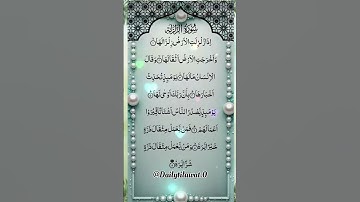 سُوۡرَةُ الزِّلۡزَالِ
اِذَا زُلۡزِلَتِ الۡاَرۡضُ زِلۡزَالَهَاۙ وَاَخۡرَجَتِ الۡاَرۡضُ اَثۡقَالَهَاۙ وَقَالَ
الۡاِنۡسَانُ مَا لَهَاۚ يَوۡمَٮِٕذٍ تُحَدِّثُ
اَخۡبَارَهَاۙ بِاَنَّ رَبَّكَ اَوۡحٰى لَهَاؕ
يَوۡمَٮِٕذٍ يَّصۡدُرُ النَّاسُ اَشۡتَاتًا ۙ لِّيُرَوۡا
اَعۡمَالَهُمۡؕ فَمَنۡ يَّعۡمَلۡ مِثۡقَالَ ذَرَّةٍ
خَيۡرًا يَّرَهٗؕ وَمَنۡ يَّعۡمَلۡ مِثۡقَالَ ذَرَّةٍ
شَرًّا يَّرَهٗ
@Dailytilawat.0